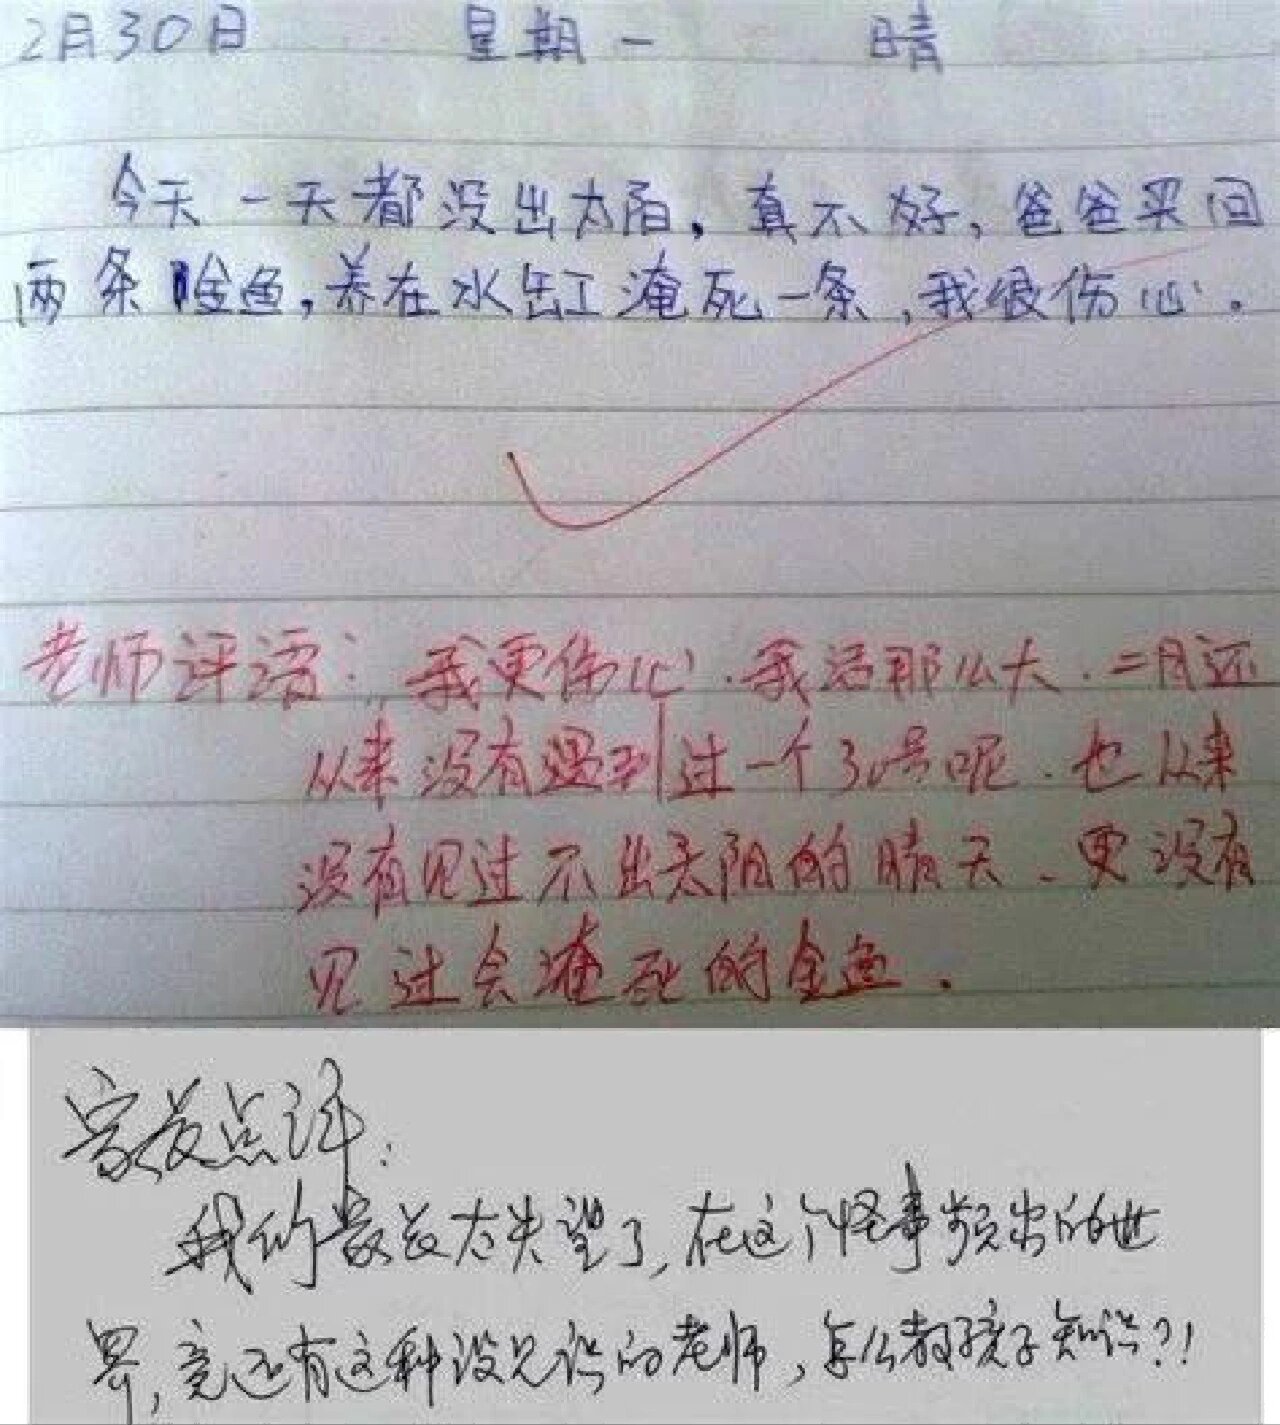 2月30日 星期一 晴
今天一天都没出太阳，真不好，爸爸买回
两条金鱼，养在水缸淹死一条，我很伤心。
老师评语：我更伤心．我活那么大．二月还
从来没有遇到过一个30号呢．也从来
没有见过不出太阳的晴天、更没有
见过会淹死的金鱼．
家长点评：
我们家长太失望了，在这个怪事频出的世
界，竟还有这种没见识的老师，怎么教孩子知识？！